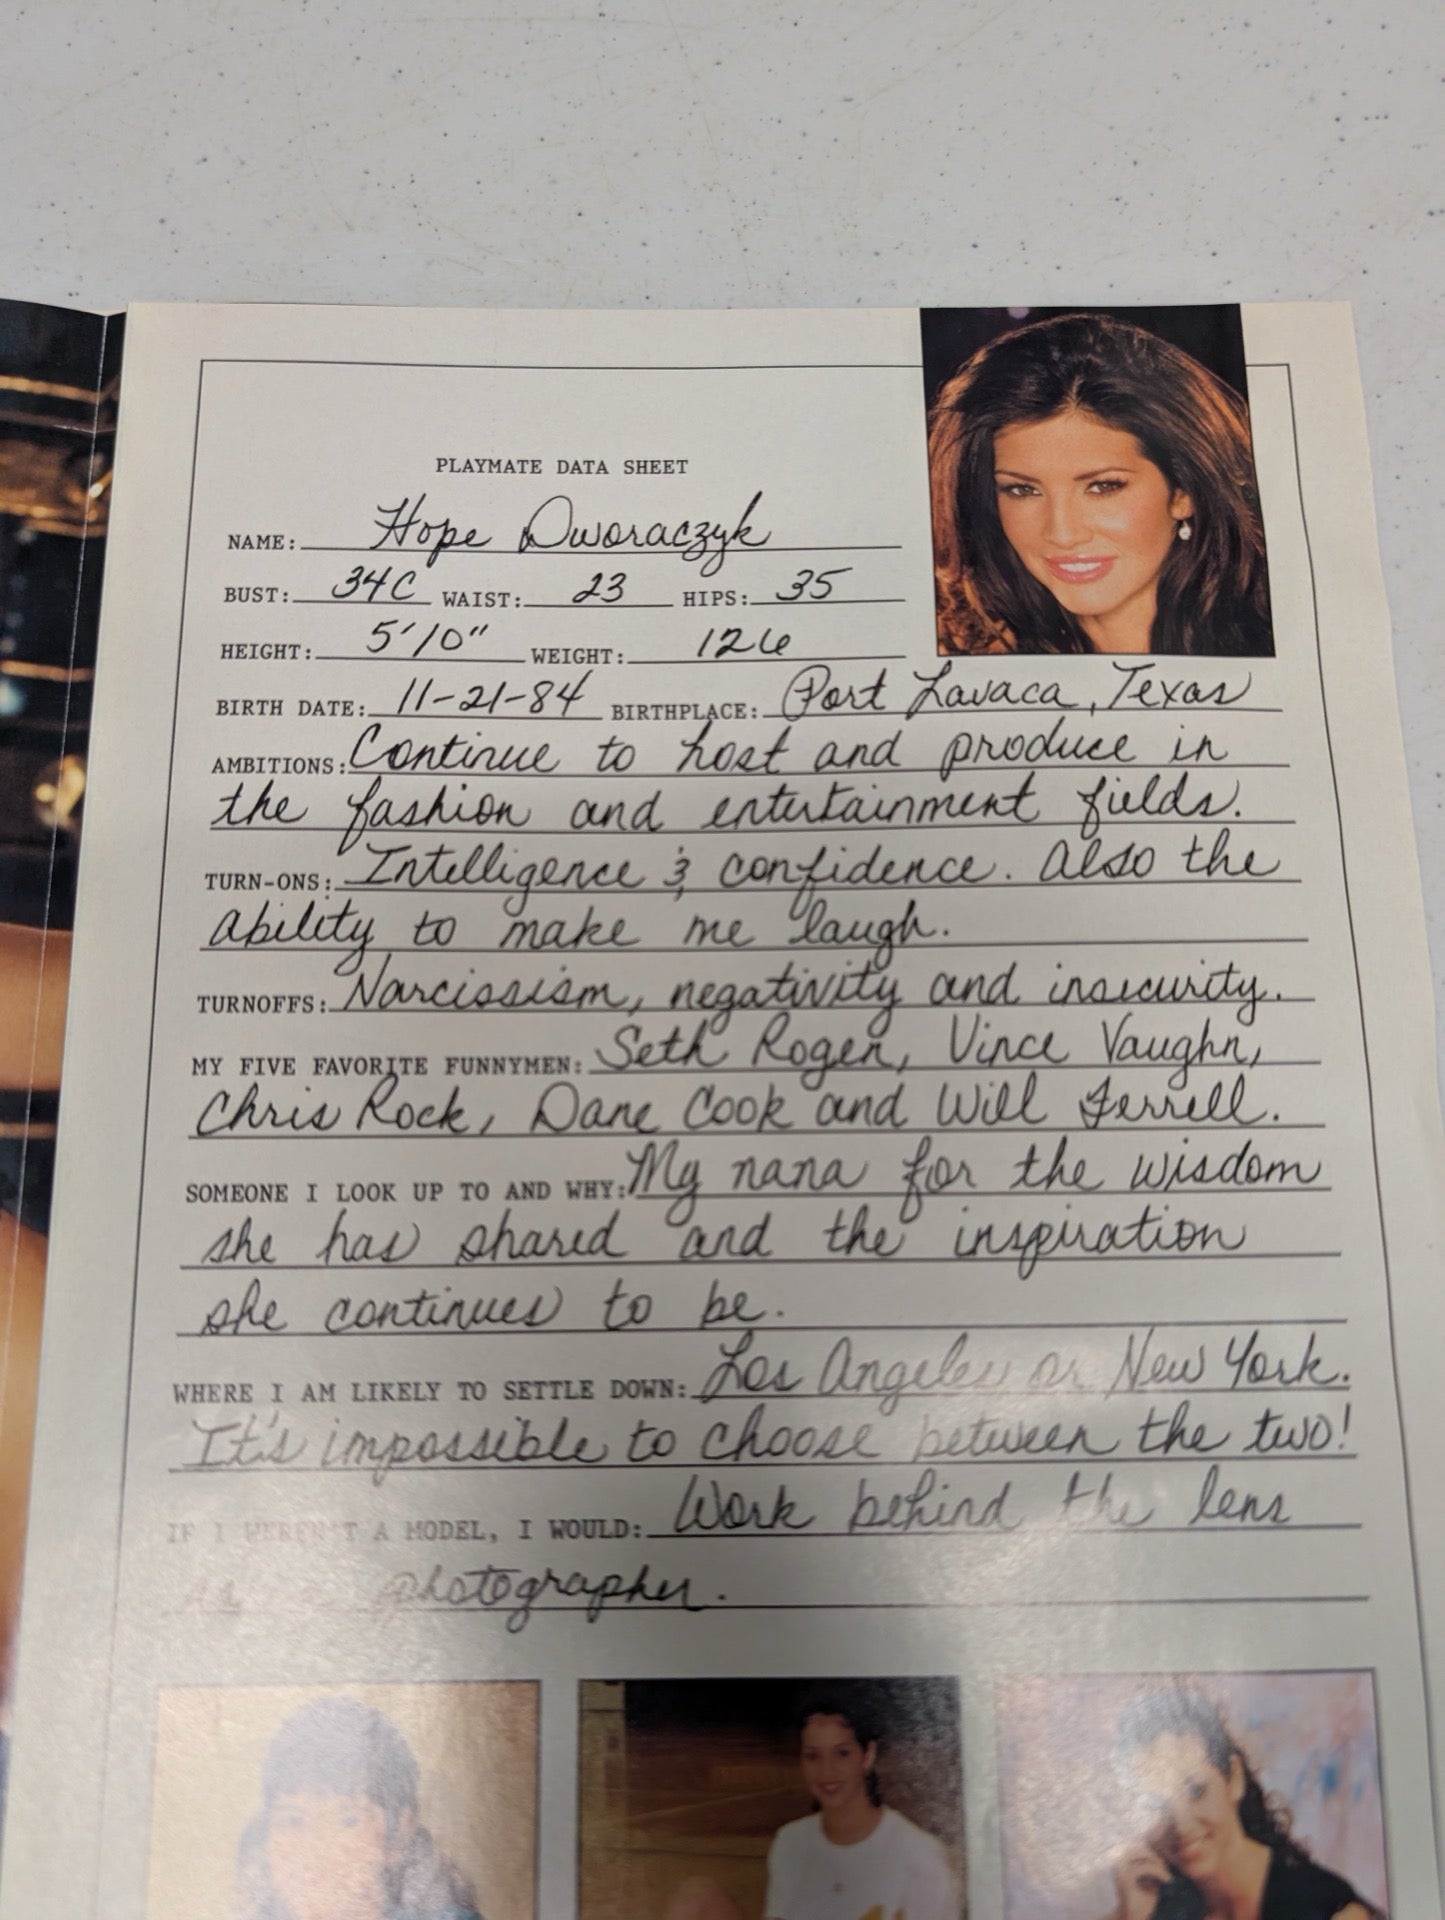 PLAYMATE DATA SHEET
NAME: Hope Dworaczyk
BUST: 34C WAIST: 23 HIPS: 35
HEIGHT: 5'10" WEIGHT: 126
BIRTH DATE: 11-21-84 BIRTHPLACE: Port Lavaca, Texas
AMBITIONS: Continue to host and produce in
the fashion and entertainment fields.
TURN-ONS: Intelligence & confidence. Also the
ability to make me laugh.
TURNOFFS: Narcissism, negativity and insecurity.
MY FIVE FAVORITE FUNNYMEN: Seth Rogen, Vince Vaughn,
Chris Rock, Dane Cook and Will Ferrell.
SOMEONE I LOOK UP TO AND WHY: My nana for the wisdom
she has shared and the inspiration
she continues to be.
WHERE I AM LIKELY TO SETTLE DOWN: Los Angeles or New York.
It's impossible to choose between the two!
IF I WEREN'T A MODEL, I WOULD: Work behind the lens
as a photographer.